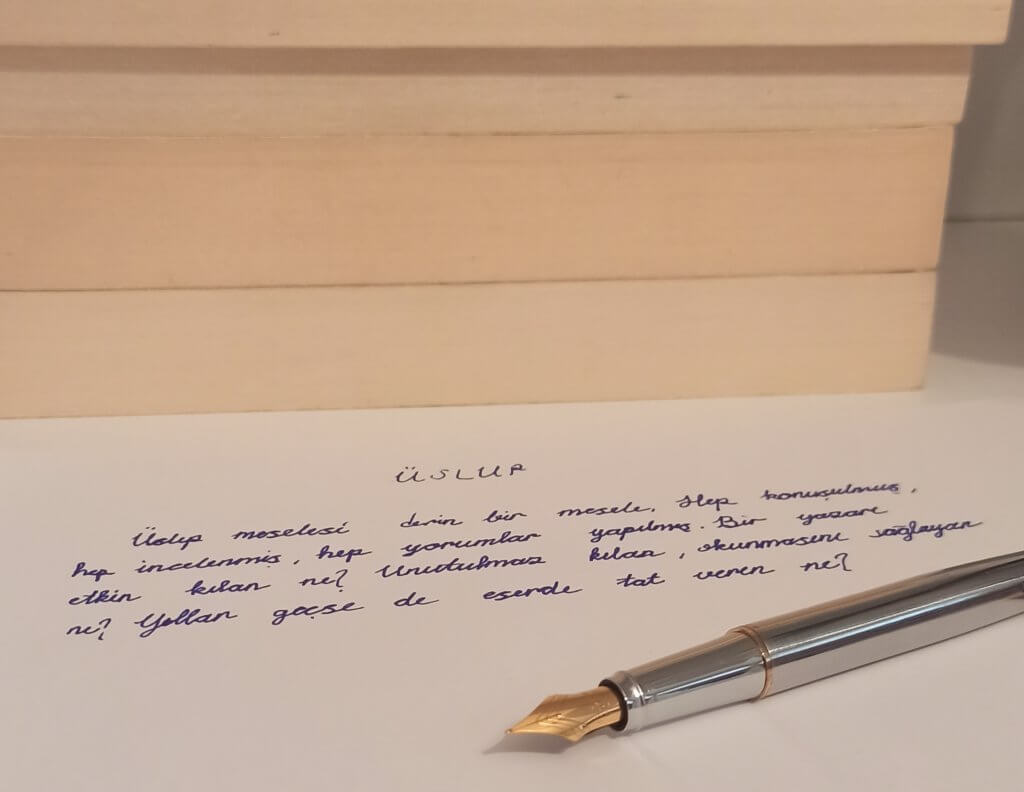 ÜSLUP
Üslup meselesi derin bir mesele. Hep konuşulmuş,
hep incelenmiş, hep yorumlar yapılmış. Bir yazarı
etkin kılan ne? Unutulmaz kılan, okunmasını sağlayan
ne? Yıllar geçse de eserde tat veren ne?